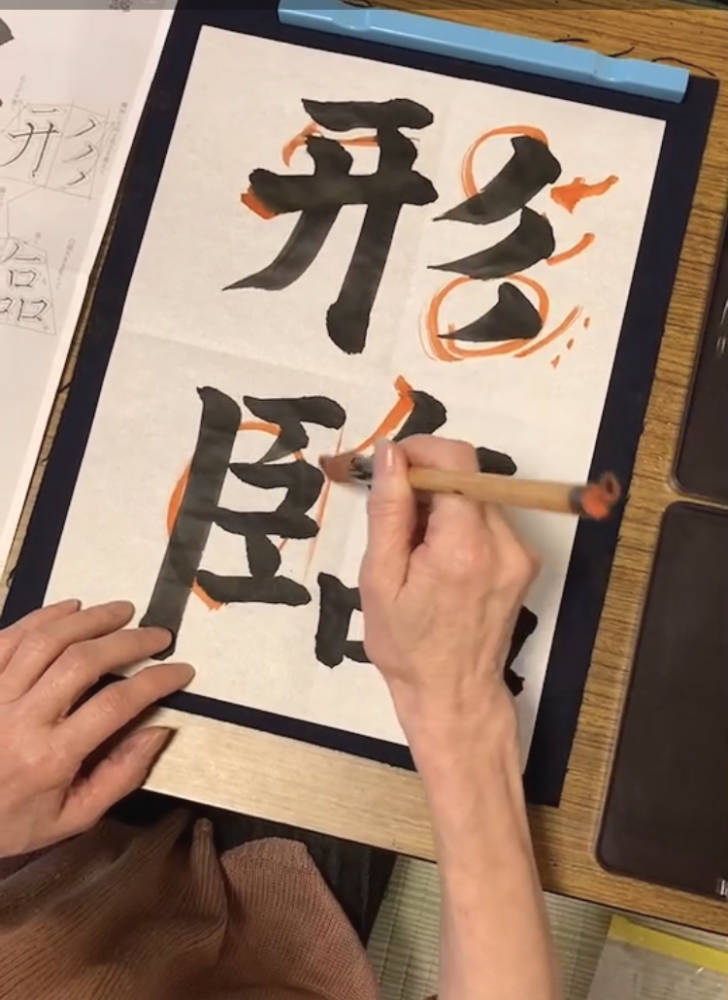 形
臨
形
臨